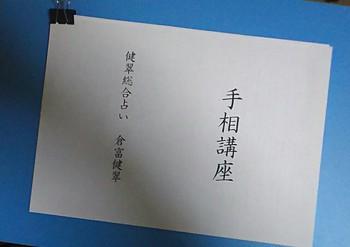 手相講座
健翠総合占い 倉富健翠